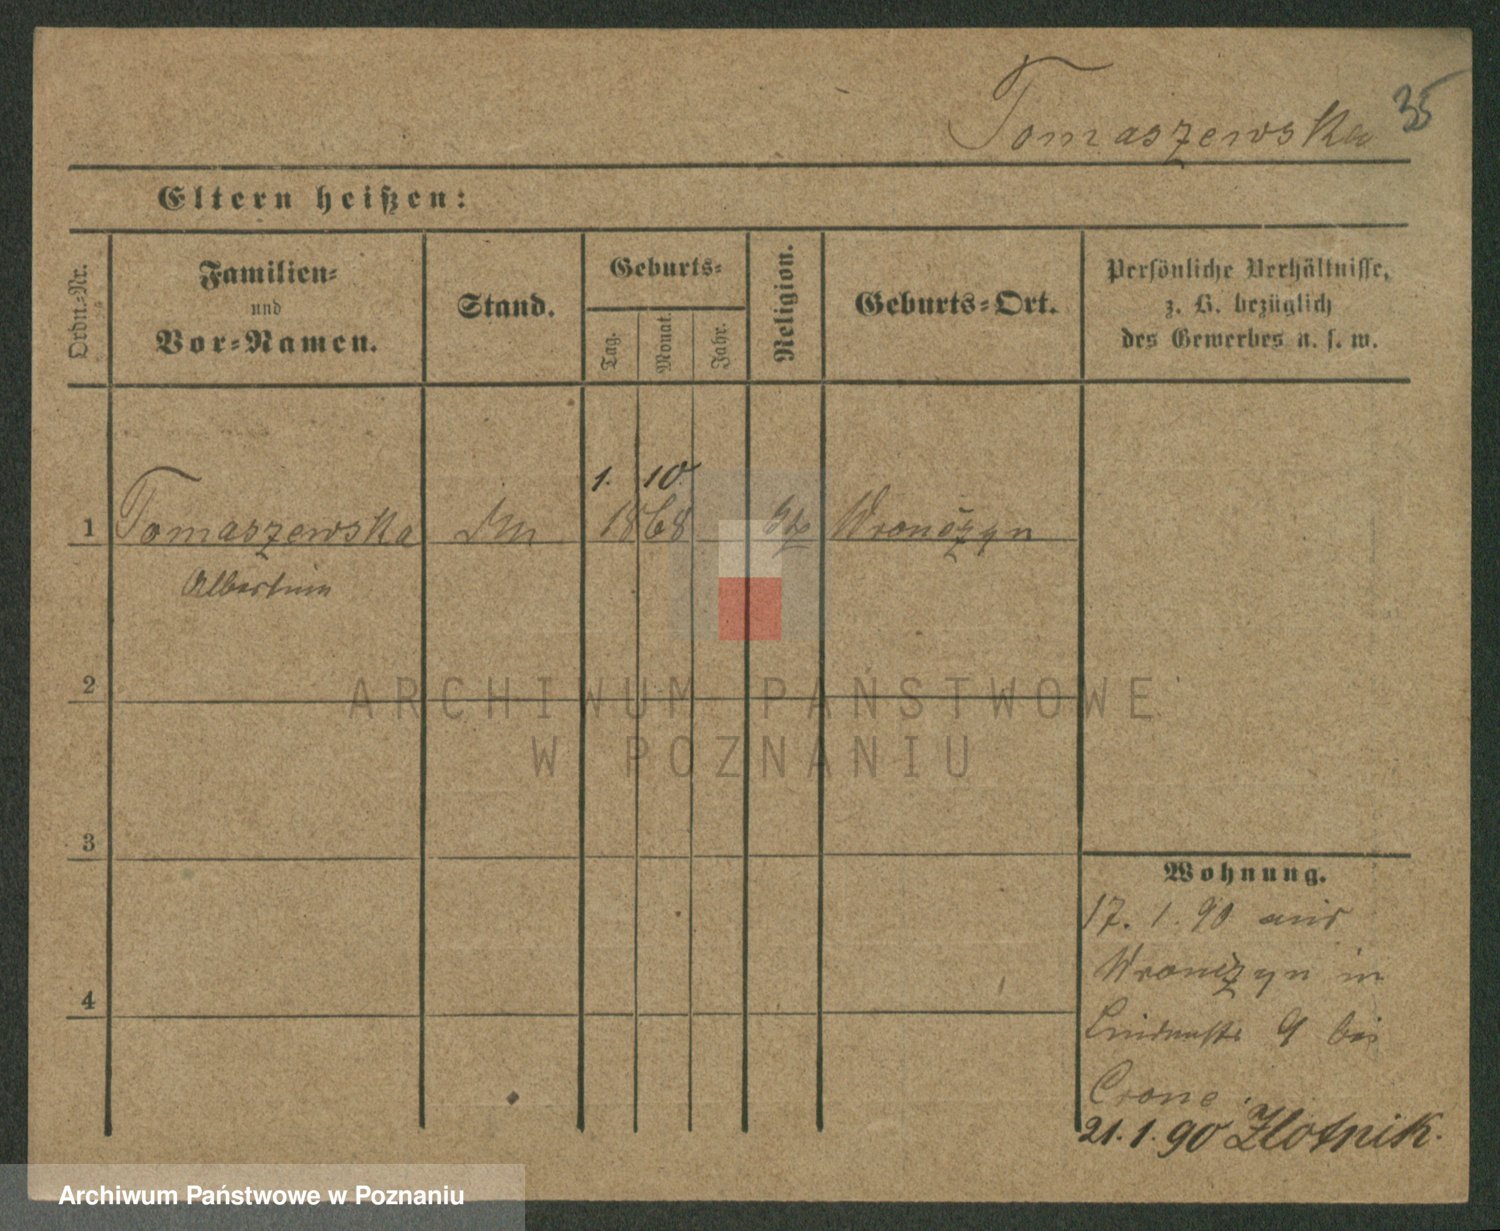 Tomaszewska 35
Eltern heißen:
Ordn.-Nr.
Familien-
und
Vor-Namen.
Stand.
Geburts-
Tag.
Monat.
Jahr.
Religion.
Geburts-Ort.
Persönliche Verhältnisse,
z. B. bezüglich
des Gewerbes u. s. w.
1. 10
1 Tomaszewska 1868 Wronczyn
Albertine
2
ARCHIWUM PAŃSTWOWE
W POZNANIU
3
Wohnung.
17. 1. 90 aus
Wronczyn in
Lindenstr 9 bei
4
Crone.
21. 1. 90 Zlotnik.
Archiwum Państwowe w Poznaniu